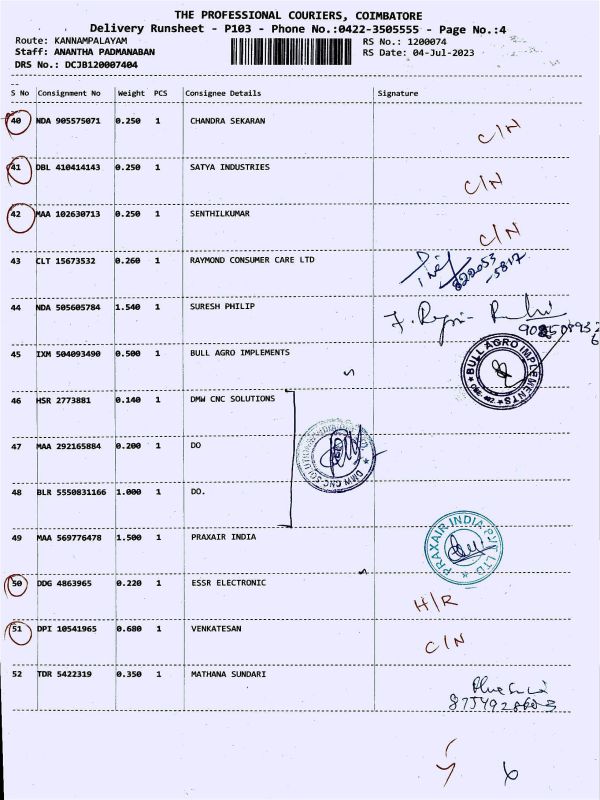 THE PROFESSIONAL COURIERS, COIMBATORE
Delivery Runsheet - P103 - Phone No.:0422-3505555 - Page No.:4
Route: KANNAMPALAYAM RS No.: 1200074
Staff: ANANTHA PADMANABAN RS Date: 04-Jul-2023
DRS No.: DCJB120007404
S No Consignment No Weight PCS Consignee Details Signature
40 NDA 905575071 0.250 1 CHANDRA SEKARAN C/N
41 DBL 410414143 0.250 1 SATYA INDUSTRIES C/N
42 MAA 102630713 0.250 1 SENTHILKUMAR C/N
43 CLT 15673532 0.260 1 RAYMOND CONSUMER CARE LTD
44 NDA 505605784 1.540 1 SURESH PHILIP
45 IXM 504093490 0.500 1 BULL AGRO IMPLEMENTS
BULL AGRO IMPLEMENTS
46 HSR 2773881 0.140 1 DMW CNC SOLUTIONS
47 MAA 292165884 0.200 1 DO
DMW CNC SOLUTIONS
48 BLR 5550831166 1.000 1 DO.
49 MAA 569776478 1.500 1 PRAXAIR INDIA
PRAXAIR INDIA PVT LTD
50 DDG 4863965 0.220 1 ESSR ELECTRONIC H/R
51 DPI 10541965 0.680 1 VENKATESAN C/N
52 TDR 5422319 0.350 1 MATHANA SUNDARI